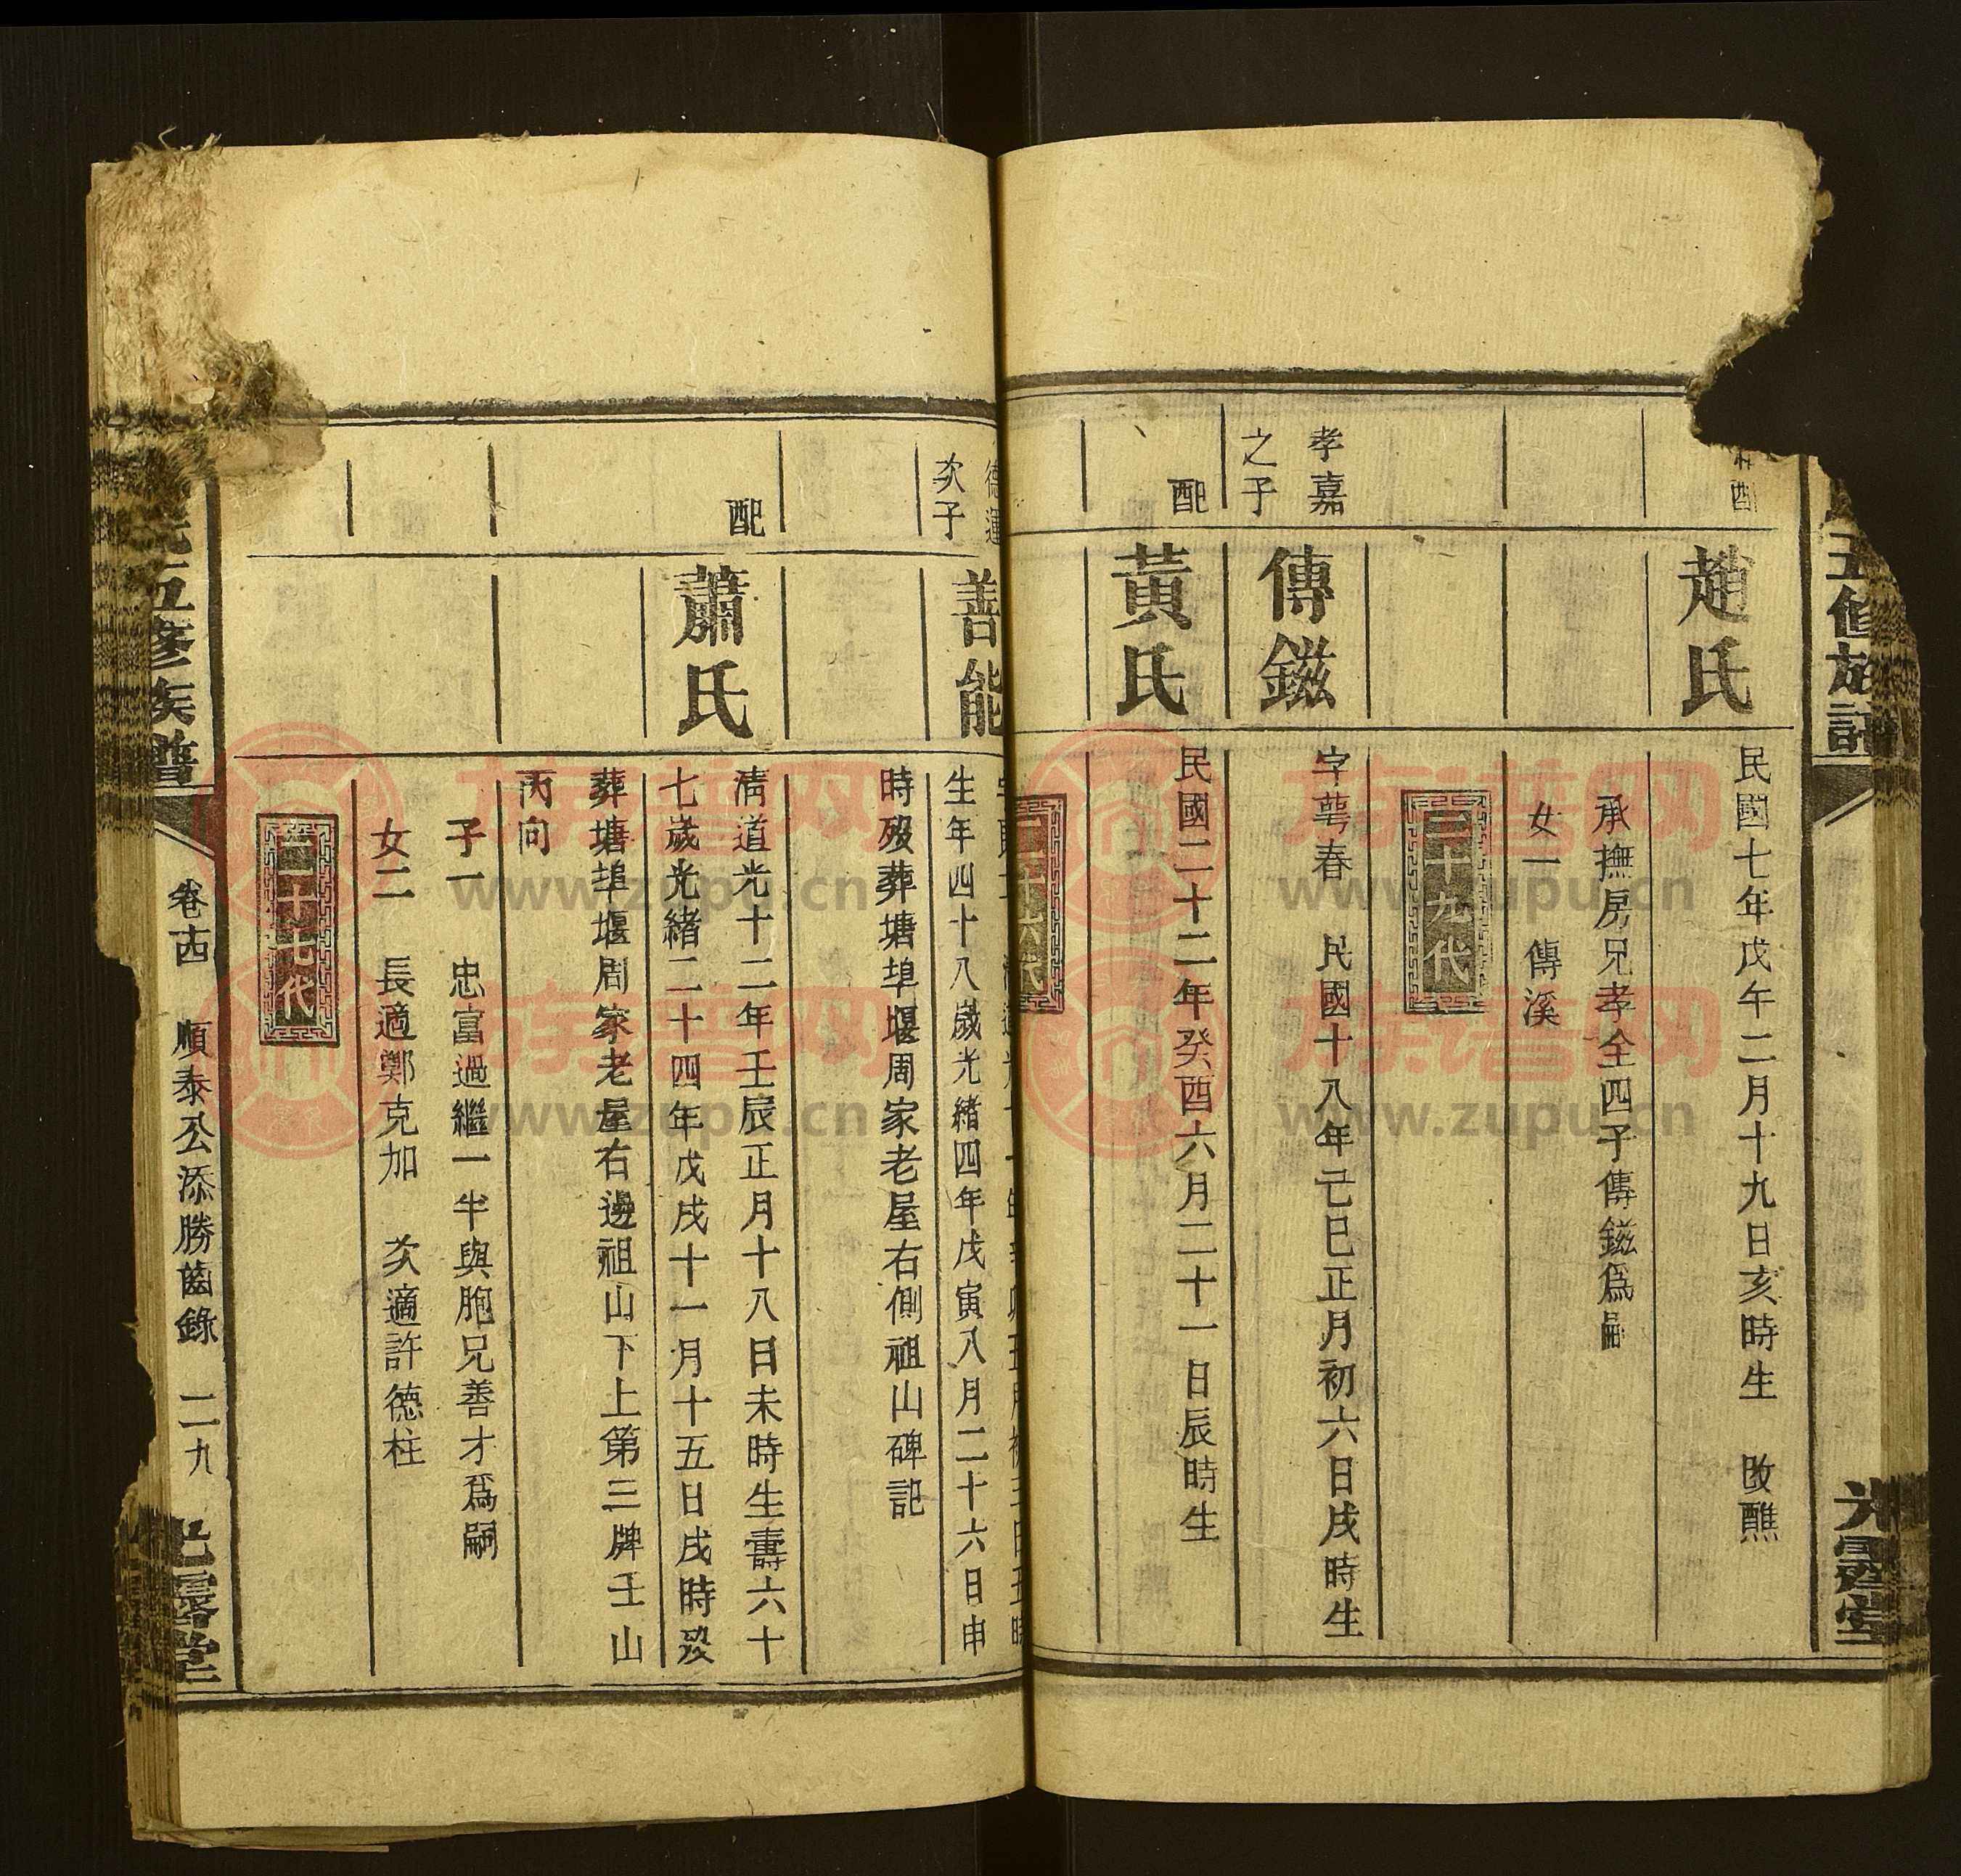 五修族譜
光霽堂
配
趙氏
民國七年戊午二月十九日亥時生 改醮
承撫房兄孝全四子傳鎡爲嗣
女一 傳溪
二十九代
孝嘉
之子
傳鎡
字蕚春 民國十八年己巳正月初六日戌時生
配
黃氏
民國二十二年癸酉六月二十一日辰時生
二十六代
德運
次子
善能
生年四十八歲光緒四年戊寅八月二十六日申
時歿葬塘埠堰周家老屋右側祖山碑記
配
蕭氏
清道光十二年壬辰正月十八日未時生壽六十
七歲光緒二十四年戊戌十一月十五日戌時歿
葬塘埠堰周家老屋右邊祖山下上第三牌壬山
丙向
子一 忠富過繼一半與胞兄善才爲嗣
女二 長適鄭克加 次適許德柱
二十七代
五修族譜
卷十四 順泰公添勝齒錄 二九
光霽堂
族谱网
www.zupu.cn
族谱网
www.zupu.cn
族谱网
www.zupu.cn
族谱网
www.zupu.cn